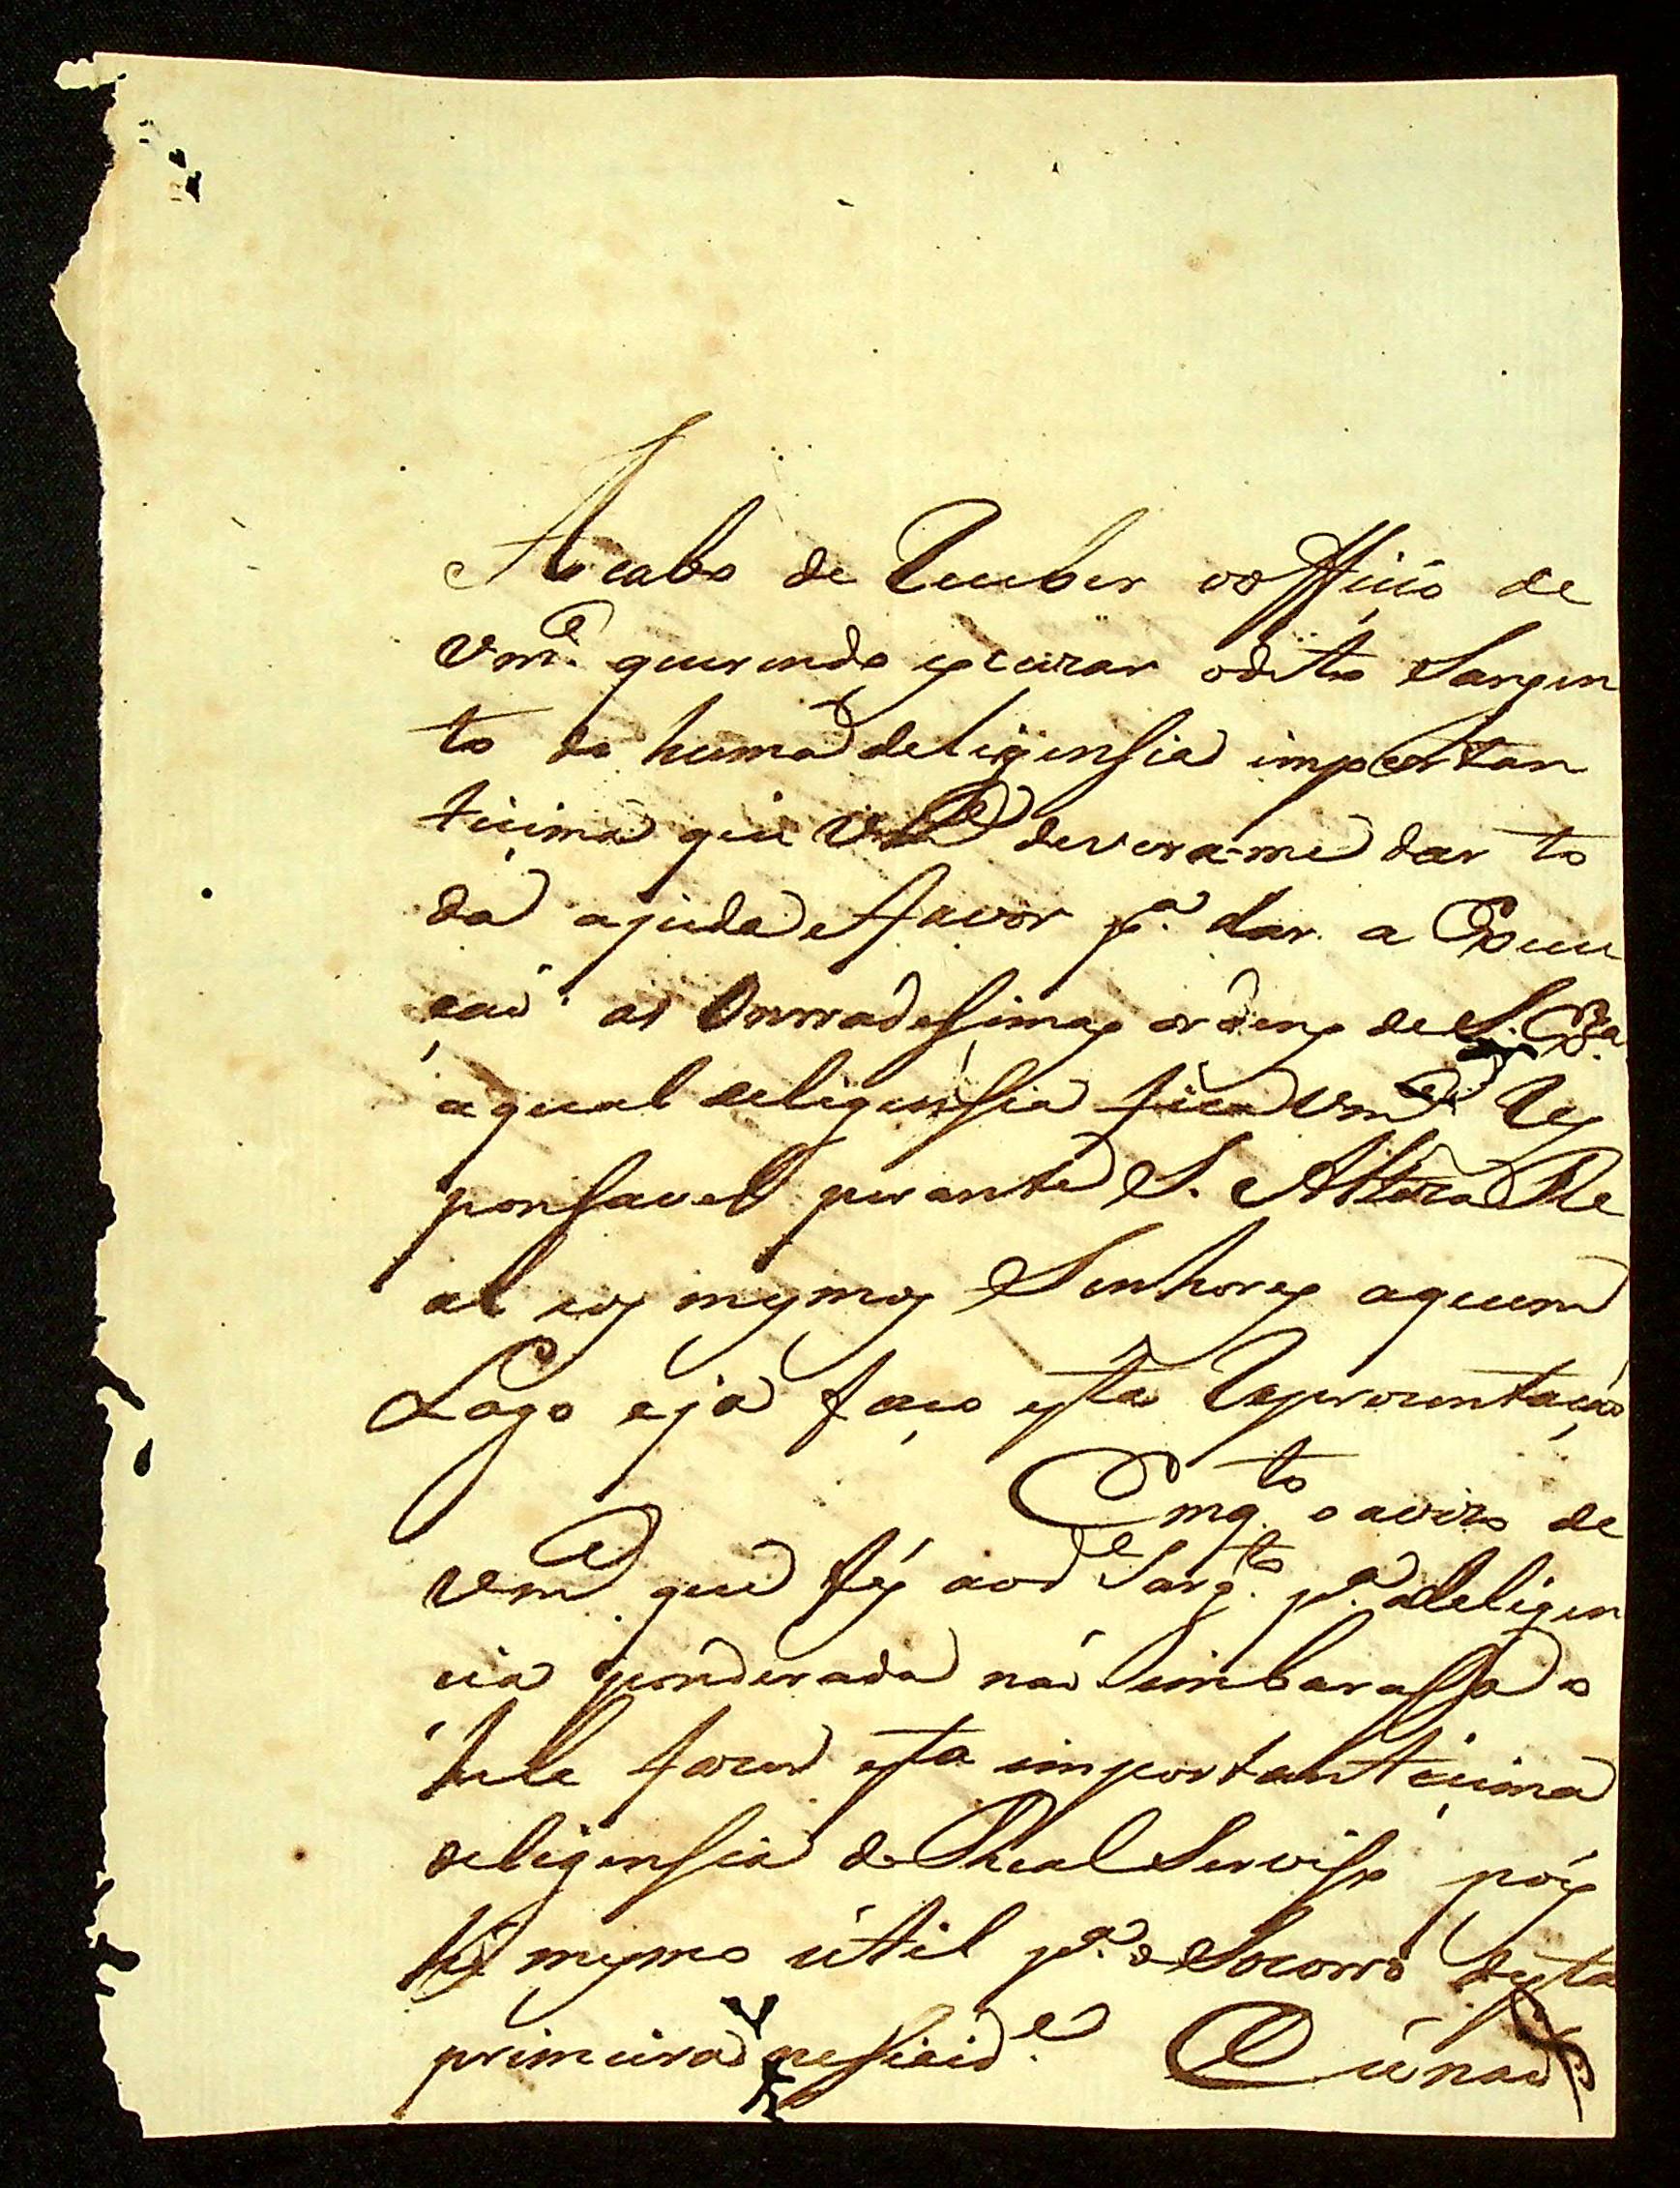 Acabo de Receber oofficio de
Vm.ce querendo excuzar odito Sargen
to da huma deligensia importan
tiçima que Vm.ce devera-me dar to
da ajuda efavor p.a dar a Execu
çaõ as Onrradisimas ordens de S. Ex.a
aqual deligensia fica Vm.ce Res
ponsavel perante S. Alteza Re
al eos mesmos Senhores aquem
Logo eja faço esta Reprezentaçaõ
Emq.to o avizo de
Vm.ce que fes aod.e Sarg.to p.a adeligen
cia ponderada naõ imbarassa o
hele fazer esta importantiçima
deligensia do Real Serviso pois
hé mesmo util p.a o Socorro desta
primeira nesicid.e E eu naõ